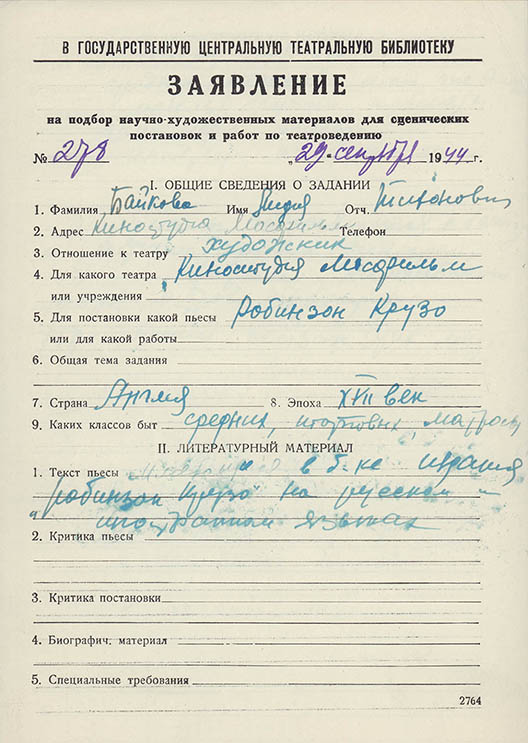 В ГОСУДАРСТВЕННУЮ ЦЕНТРАЛЬНУЮ ТЕАТРАЛЬНУЮ БИБЛИОТЕКУ
ЗАЯВЛЕНИЕ
на подбор научно-художественных материалов для сценических
постановок и работ по театроведению
№ 278 „29 сентября 1944 г.
I. ОБЩИЕ СВЕДЕНИЯ О ЗАДАНИИ
1. Фамилия Байкова Имя Лидия Отч.
2. Адрес Киностудия Мосфильм Телефон
3. Отношение к театру художник
4. Для какого театра Киностудия Мосфильм
или учреждения
5. Для постановки какой пьесы Робинзон Крузо
или для какой работы
6. Общая тема задания
7. Страна Англия 8. Эпоха XVII век
9. Каких классов быт средних, матросы
II. ЛИТЕРАТУРНЫЙ МАТЕРИАЛ
1. Текст пьесы в б-ке издания
"Робинзон Крузо" на русском и
иностранном языках
2. Критика пьесы
3. Критика постановки
4. Биографич. материал
5. Специальные требования
2764